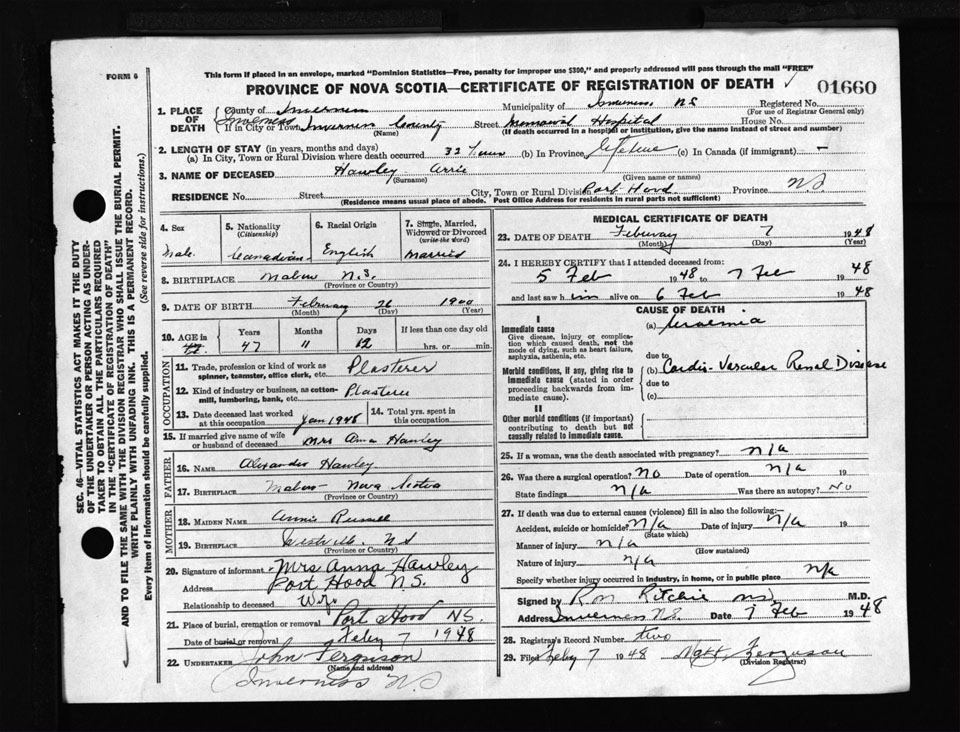 FORM 6
This form if placed in an envelope, marked "Dominion Statistics—Free, penalty for improper use $300," and properly addressed will pass through the mail "FREE"
PROVINCE OF NOVA SCOTIA—CERTIFICATE OF REGISTRATION OF DEATH
01660
1. PLACE OF DEATH
County of Inverness Municipality of Inverness, NS Registered No.
(For use of Registrar General only)
Inverness
If in City or Town Inverness County Street Memorial Hospital House No.
(Name) (If death occurred in a hospital or institution, give the name instead of street and number)
2. LENGTH OF STAY (in years, months and days)
(a) In City, Town or Rural Division where death occurred 32 Years (b) In Province Lifetime (c) In Canada (if immigrant) —
3. NAME OF DECEASED Hawley
(Surname) (Given name or names)
RESIDENCE No. Street City, Town or Rural Division Port Hood Province NS
(Residence means usual place of abode. Post Office Address for residents in rural parts not sufficient)
4. Sex
Male.
5. Nationality
(Citizenship)
Canadian
6. Racial Origin
English
7. Single, Married, Widowed or Divorced
(write the word)
Married
8. BIRTHPLACE Mabou N.S.
(Province or Country)
9. DATE OF BIRTH February 26 1900
(Month) (Day) (Year)
10. AGE in
Years Months Days If less than one day old
47 11 12 hrs. or min.
OCCUPATION
11. Trade, profession or kind of work as spinner, teamster, office clerk, etc. Plasterer
12. Kind of industry or business, as cotton-mill, lumbering, bank, etc. Plasterer
13. Date deceased last worked at this occupation Jan 1948
14. Total yrs. spent in this occupation
15. If married give name of wife or husband of deceased Mrs Anna Hawley
FATHER
16. NAME Alexander Hawley
17. BIRTHPLACE Mabou Nova Scotia
(Province or Country)
MOTHER
18. MAIDEN NAME Annie Russell
19. BIRTHPLACE Westville NS
(Province or Country)
20. Signature of informant Mrs Anna Hawley
Address Port Hood N.S.
Relationship to deceased Wife
21. Place of burial, cremation or removal Port Hood NS.
Date of burial or removal Feby 7 1948
22. UNDERTAKER John Ferguson
(Name and address)
(Inverness N.S
MEDICAL CERTIFICATE OF DEATH
23. DATE OF DEATH February 7 1948
(Month) (Day) (Year)
24. I HEREBY CERTIFY that I attended deceased from:
5 Feb 1948 to 7 Feb 1948
and last saw him alive on 6 Feb 1948
CAUSE OF DEATH
I
Immediate cause (a) Uraemia
Give disease, injury or complication which caused death, not the mode of dying, such as heart failure, asphyxia, asthenia, etc.
due to
Morbid conditions, if any, giving rise to immediate cause (stated in order proceeding backwards from immediate cause).
(b) Cardio-Vascular Renal Disease
due to
(c)
II
Other morbid conditions (if important) contributing to death but not causally related to immediate cause.
25. If a woman, was the death associated with pregnancy? n/a
26. Was there a surgical operation? No Date of operation n/a 19
State findings n/a Was there an autopsy? No
27. If death was due to external causes (violence) fill in also the following:
Accident, suicide or homicide? n/a Date of injury n/a 19
(State which)
Manner of injury n/a
(How sustained)
Nature of injury n/a
Specify whether injury occurred in industry, in home, or in public place n/a
Signed by Ron Ritchie MD M.D.
Address Inverness N.S. Date 7 Feb 1948
28. Registrar's Record Number two
29. Filed Feby 7 1948 Ferguson
(Division Registrar)
SEC. 46—VITAL STATISTICS ACT MAKES IT THE DUTY
OF THE UNDERTAKER OR PERSON ACTING AS UNDER-
TAKER TO OBTAIN ALL THE PARTICULARS REQUIRED
IN THE "CERTIFICATE OF REGISTRATION OF DEATH"
AND TO FILE THE SAME WITH THE DIVISION REGISTRAR WHO SHALL ISSUE THE BURIAL PERMIT.
WRITE PLAINLY WITH UNFADING INK. THIS IS A PERMANENT RECORD.
Every item of information should be carefully supplied. (See reverse side for instructions.)